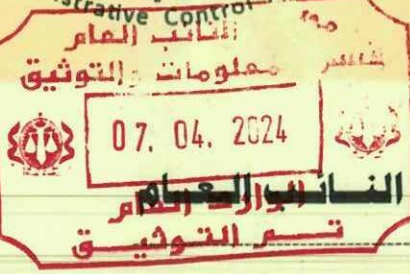 strative Control
النائب العام
معلومات والتوثيق
07. 04. 2024
النائب العام
تم التوثيق